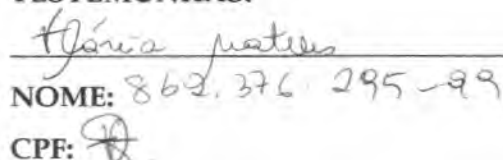 TESTEMUNHAS:
NOME: 862.376.295-99
CPF: